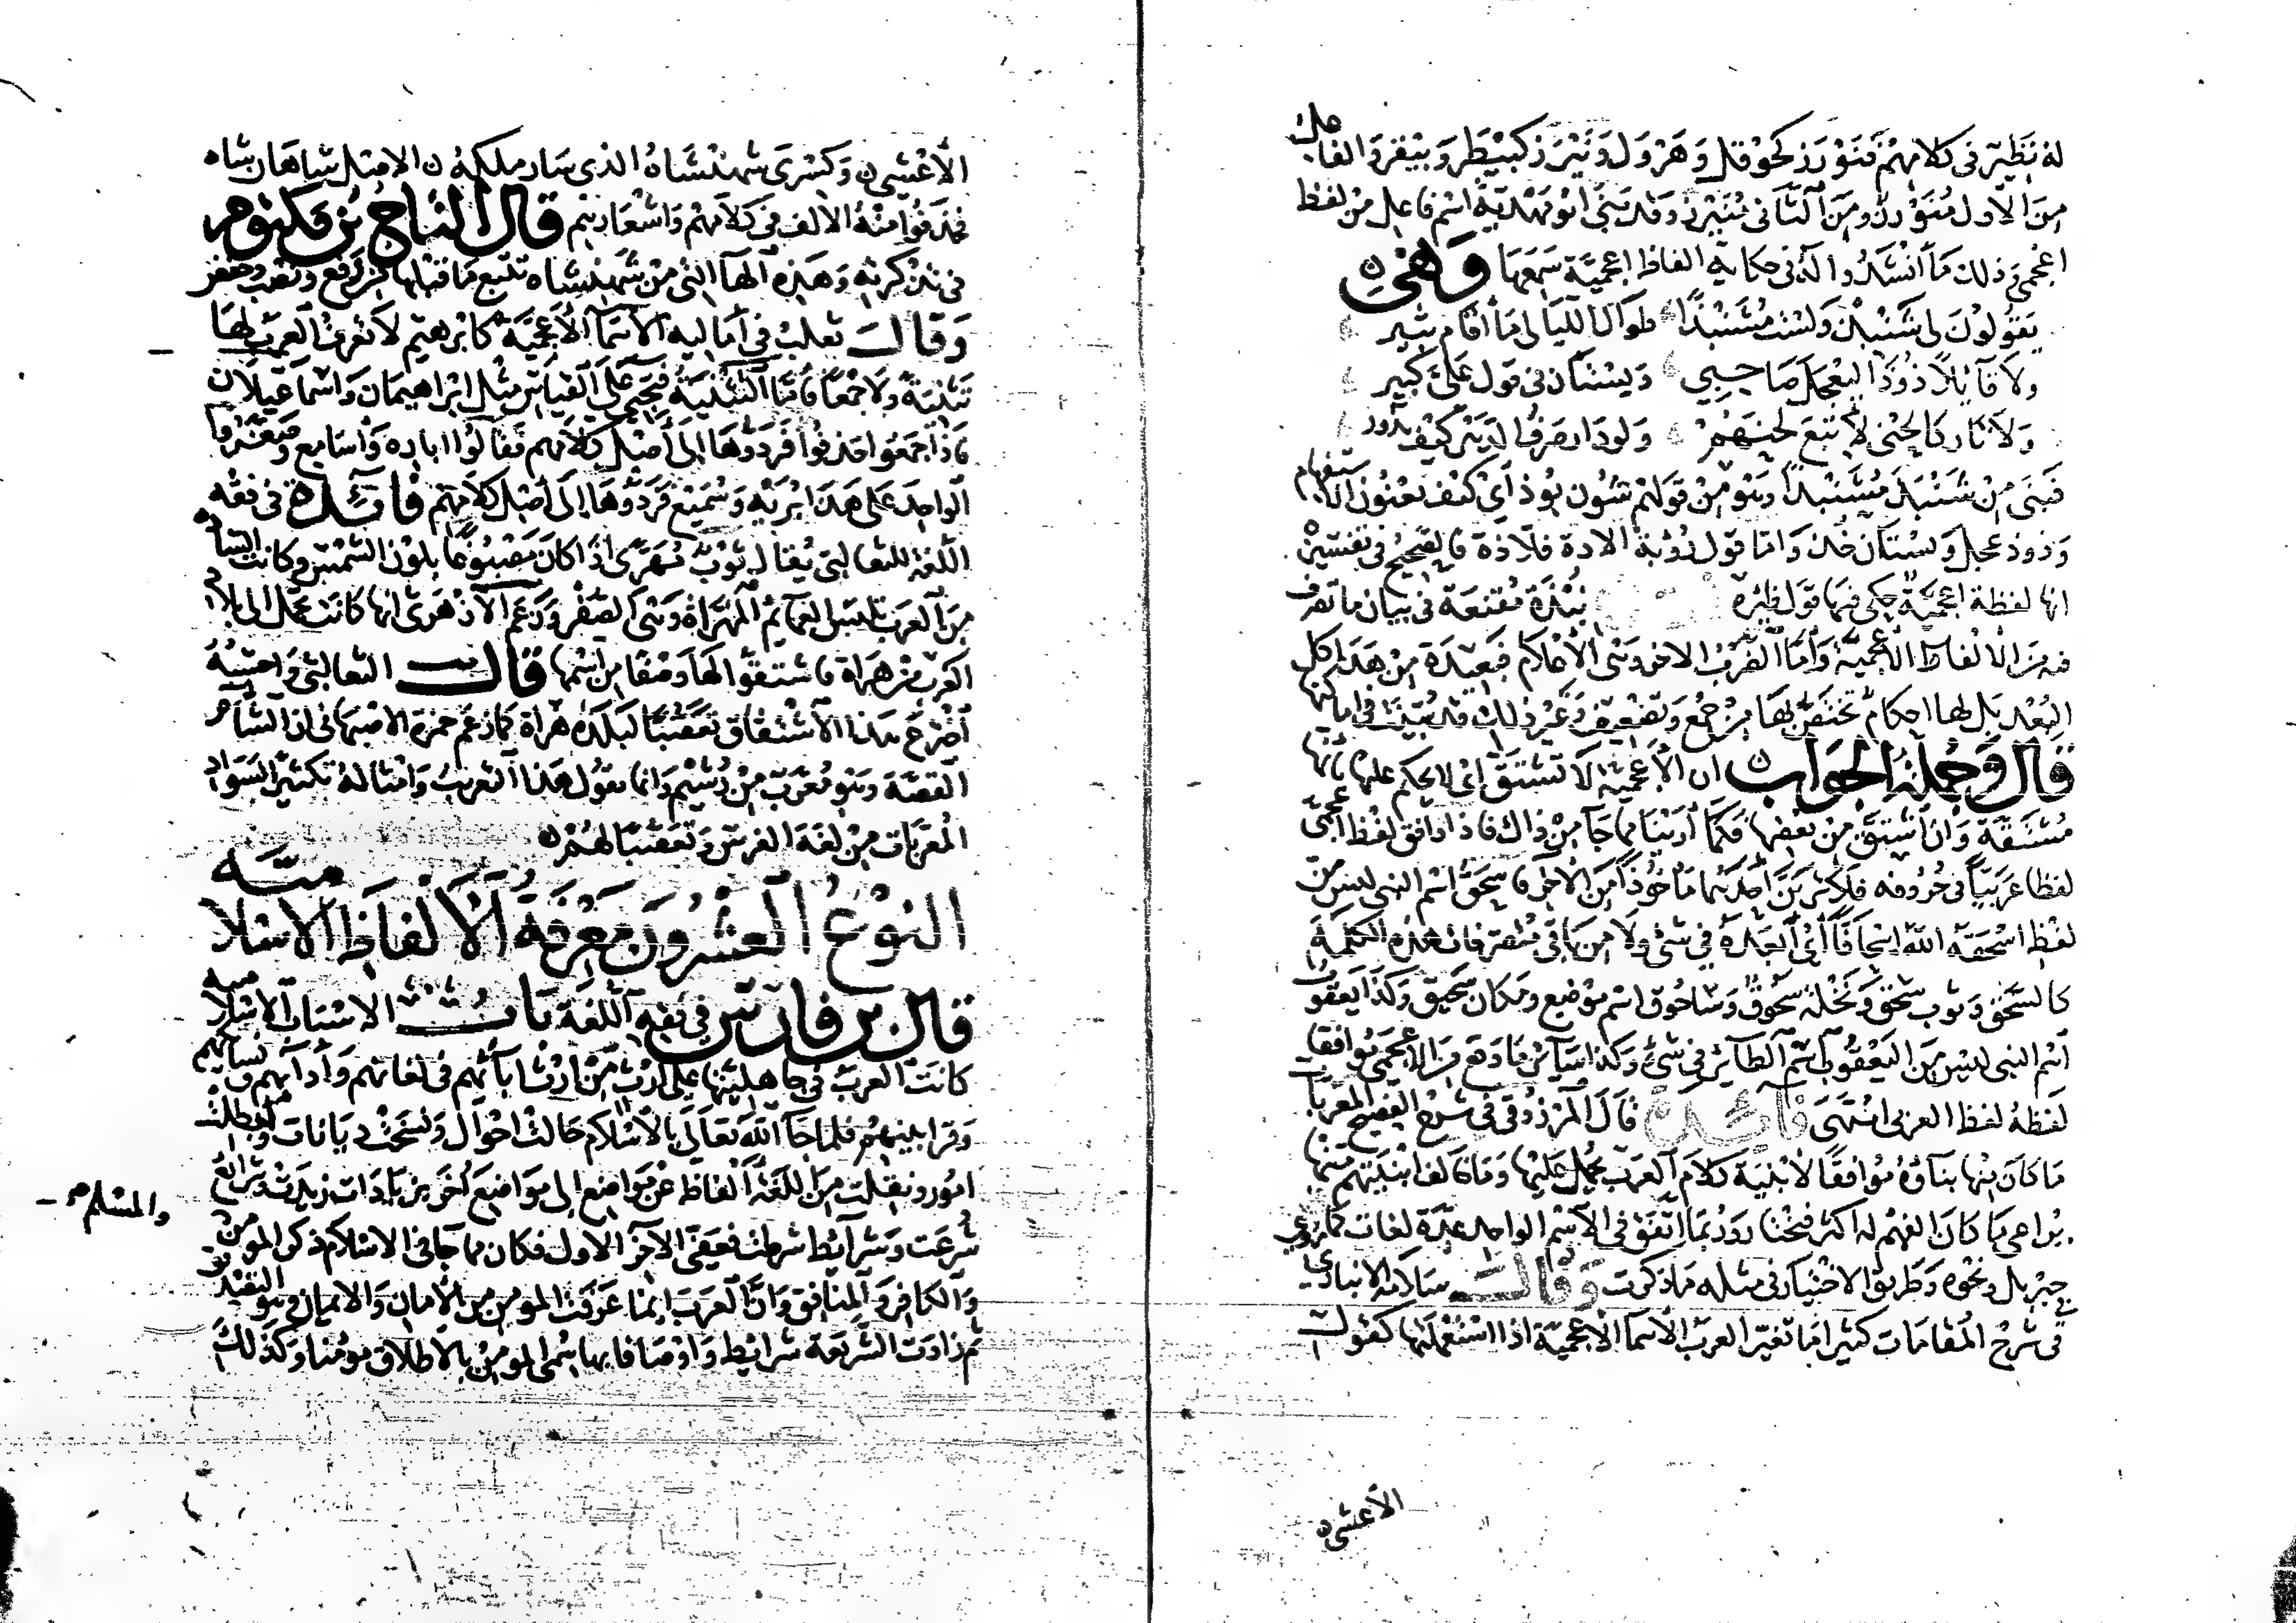 له نظير في كلامهم فنورز كحوقل وهرول ونيرز كبيطر وبيقر والفاعل
من الاول منورز ومن الثاني منيرز وقد بني ابو مهدية اسم فاعل من لفظ
اعجمي وذلك ما انشدوا له في حكاية الفاظ اعجمية سمعها وهي
يقولون لي شنبذ ولست مشنبذا طوال الليالي ما اقام ثبير
ولا قائلا زوذا ليعجل صاحبي وبستان في قول علي كبير
ولا تاركا لحني لاتبع لحنهم ولو دار صرف الدهر كيف يدور
فبنى من شنبذ مشنبذا وهو من قولهم شون بوذ اي كيف يعنون الاستفهام
وزوذ عجل وبستان خذ واما قول رؤبة الاده فلاده فالصحيح في تفسيره
انها لفظة اعجمية حكى فيها قول ظئره نبذة مقنعة في بيان ما تصرف
فيه من الالفاظ الاعجمية واما الضرب الاخر وهي الاعلام فبعيدة من هذا كل
البعد بل لها احكام تختص بها من جمع وتصغير وغير ذلك قد بينت في اماكنها
قال وجملة الجواب ان الاعجمية لا تشتق اي لا يحكم عليها بانها
مشتقة وان اشتق من بعضها فكما ارينا مما جا من ذاك فاذا وافق لفظ اعجمي
لفظا عربيا في حروفه فلا ترين احدهما ماخوذا من الاخر فاسحق اسم النبي ليس من
لفظ اسحقه الله اسحاقا اي ابعده في شي ولا من باقي متصرفات هذه الكلمة
كالسحق وثوب سحق ونخلة سحوق وساحوق اسم موضع ومكان سحيق وكذا يعقوب
اسم النبي ليس من اليعقوب اسم الطائر في شي وكذا سائر ما وقع من الاعجمي موافقا
لفظه لفظ العربي انتهى فائدة قال المرزوقي في شرح الفصيح المعربات
ما كان منها بناؤه موافقا لابنية كلام العرب يحمل عليها وما خالف ابنيتهم منها
يراعي ما كان الفهم له اكثر فيختار وربما اتفق في الاسم الواحد عدة لغات كما روي
جبريل ونحوه وطريق الاختيار في مثله ما ذكرت وقال سلامة الانباري
في شرح المقامات كثيرا ما تغير العرب الاسما الاعجمية اذا استعملتها كقول
الاعشى
الاعشى وكسرى شهنشاه الذي سار ملكه الاصل شاهان شاه
فحذفوا منه الالف في كلامهم واشعارهم قال التاج بن مكتوم
في تذكرته وهذه الهآ التي من شهنشاه تتبع ما قبلها من رفع ونصب وخفض
وقال ثعلب في اماليه الاسما الاعجمية كابرهيم لا تعرف العرب لها
تثنية ولا جمعا فاما التثنية فتجي على القياس مثل ابراهيمان واسماعيلان
فاذا جمعوا حذفوا فردوها الى اصل كلامهم فقالوا اباره واسامع وصغروا
الواحد على هذا بريه وسميع فردوها الى اصل كلامهم فائدة في فقه
اللغة للثعالبي يقال ثوب مهرى اذا كان مصبوغا بلون الشمس وكانت السادة
من العرب تلبس العمائم المهراة وهي الصفر وزعم الازهري انها كانت تحمل الى بلاد
العرب من هراة فاشتقوا لها وصفا من اسمها قال الثعالبي واحسبه
اخترع هذا الاشتقاق تعصبا لبلده هراة كما زعم حمزة الاصبهاني ان السام
الفضة وهو معرب من سيم وانما تقول هذا التعريب وامثاله تكثيرا لسواد
المعربات من لغة الفرس وتعصبا لهم
النوع العشرون معرفة الالفاظ الاسلامية
قال بن فارس في فقه اللغة باب الاسباب الاسلامية
كانت العرب في جاهليتها على ارث من ارث ابائهم في لغاتهم وادابهم ونسائكهم
وقرابينهم فلما جا الله تعالى بالاسلام حالت احوال ونسخت ديانات وابطلت
امور ونقلت من اللغة الفاظ عن مواضع الى مواضع اخر بزيادات زيدت وشرائع
شرعت وشرائط شرطت فعفى الاخر الاول فكان مما جا في الاسلام ذكر المومن
والمسلم
والكافر والمنافق وان العرب انما عرفت المومن من الامان والايمان وهو التصديق
ثم زادت الشريعة شرائط واوصافا بها سمي المومن بالاطلاق مومنا وكذلك